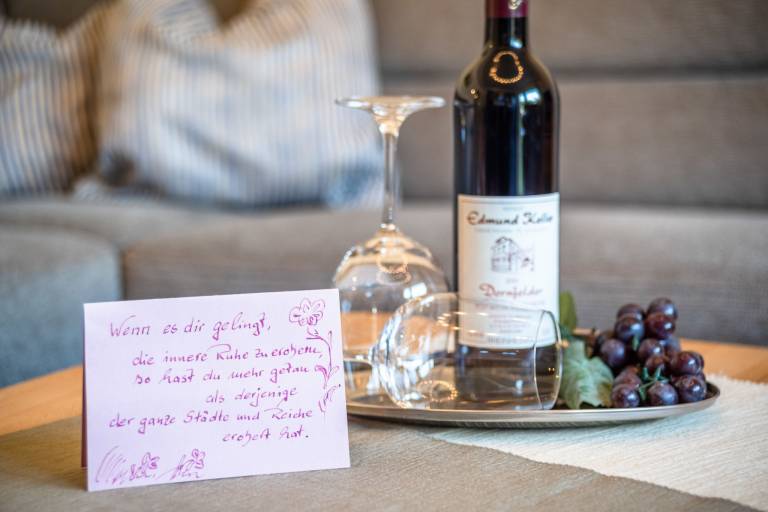 Wenn es dir gelingt,
die innere Ruhe zu erobern,
so hast du mehr getan
als derjenige
der ganze Städte und Reiche
erobert hat.
Edmund Keller
Dornfelder